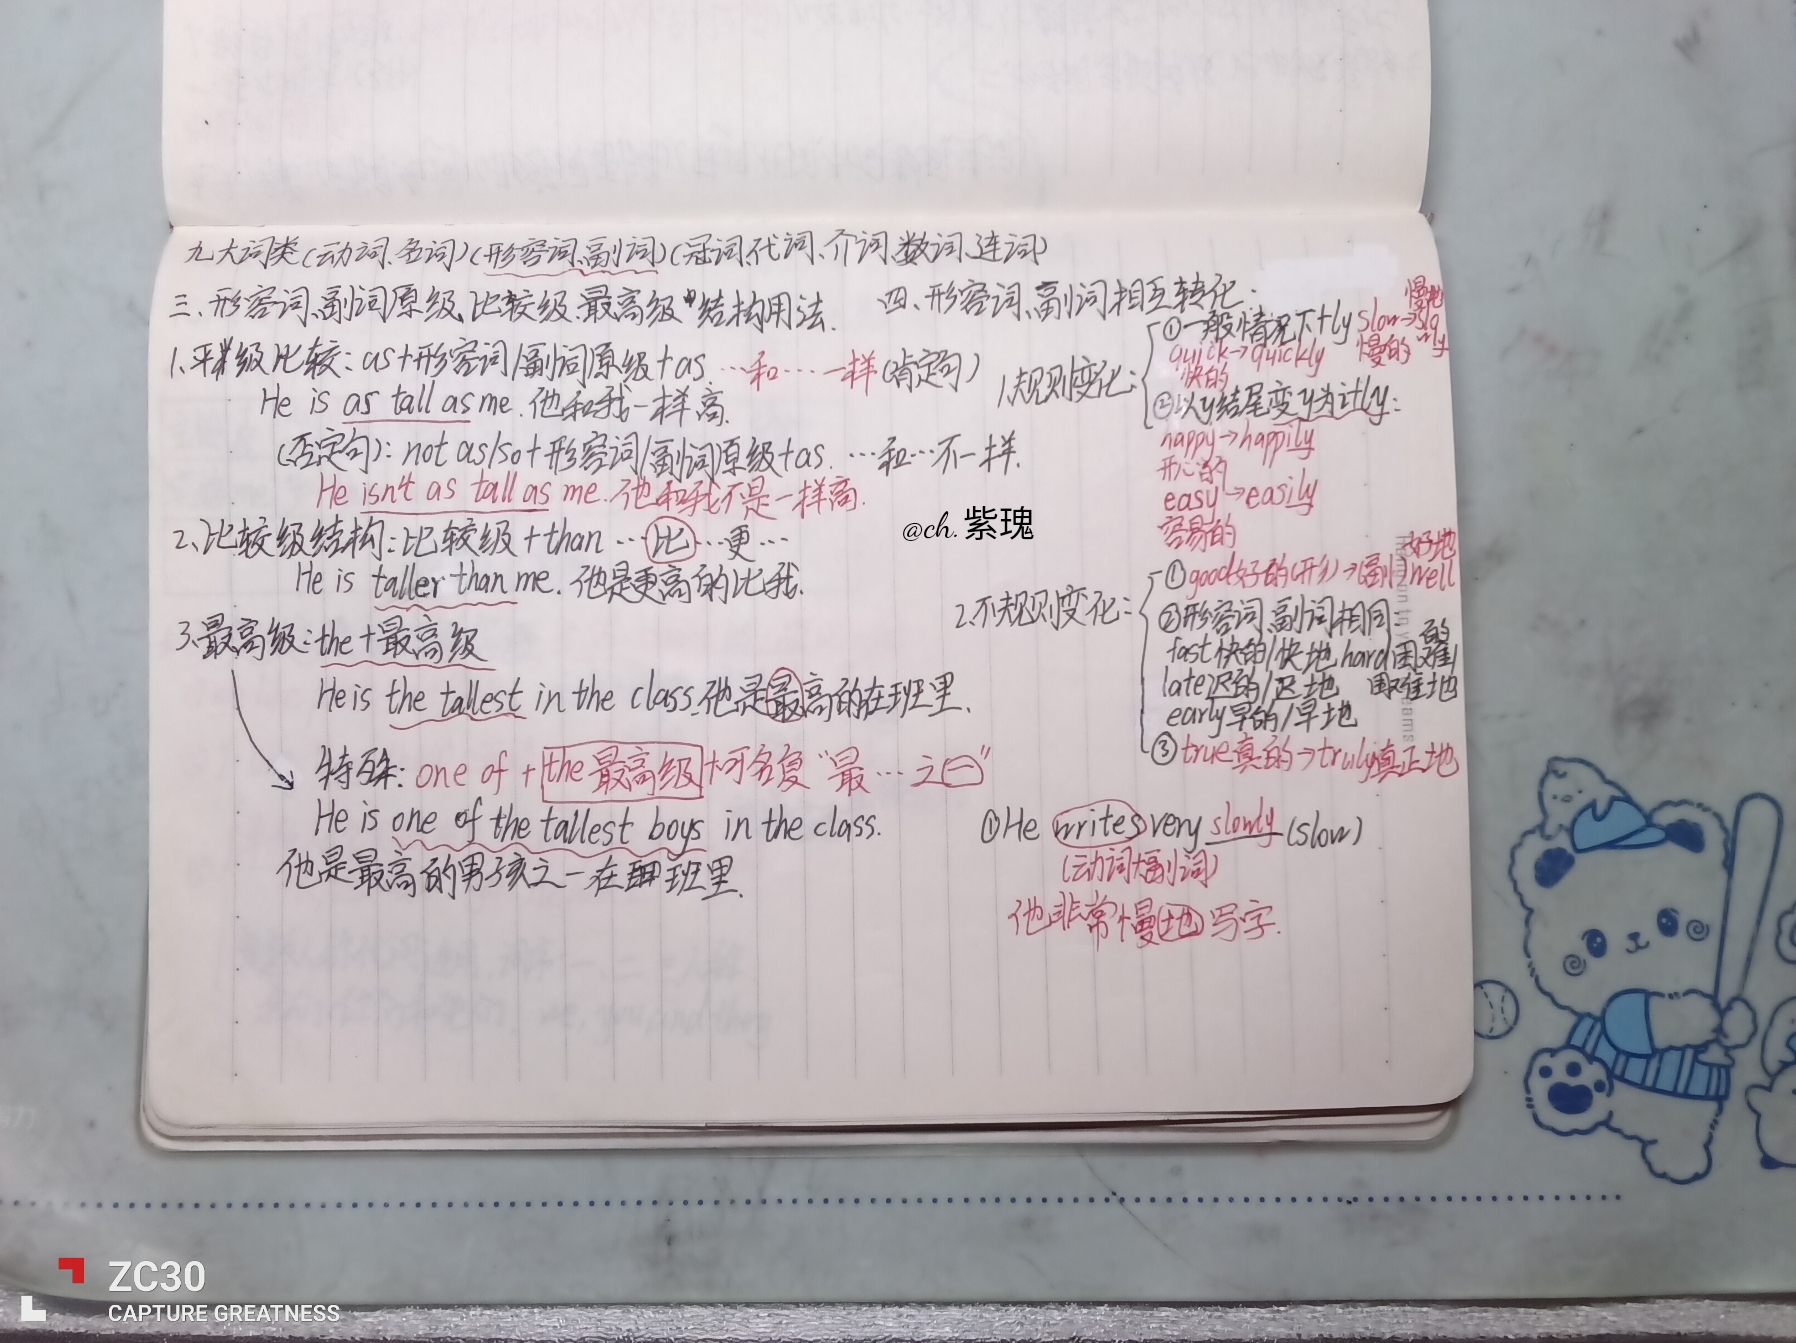 九大词类(动词、名词)(形容词、副词)(冠词、代词、介词、数词、连词)
三、形容词、副词原级、比较级、最高级 结构用法.
1、平级比较:as+形容词/副词原级+as …和…一样(肯定句)
He is as tall as me. 他和我一样高.
(否定句):not as/so+形容词/副词原级+as. …和…不一样.
He isn't as tall as me. 他和我不是一样高.
2、比较级结构:比较级+than …比…更…
He is taller than me. 他是更高的比我.
3、最高级:the+最高级
He is the tallest in the class. 他是最高的在班里.
特殊:one of + the 最高级+可名复"最…之一"
He is one of the tallest boys in the class.
他是最高的男孩之一在班里.
四、形容词、副词相互转化.
1、规则变化:
①一般情况下+ly slow→slowly
慢地
慢的
quick→quickly
快的
②以y结尾变y为i+ly:
happy→happily
开心的
easy→easily
容易的
2、不规则变化:
①good好的(形)→(副)well
好地
②形容词、副词相同:
fast快的/快地 hard困难的/
late迟的/迟地 困难地
early早的/早地
③true真的→truly真正地
①He writes very slowly (slow)
(动词+副词)
他非常慢地写字.
@ch.紫瑰
ZC30
CAPTURE GREATNESS